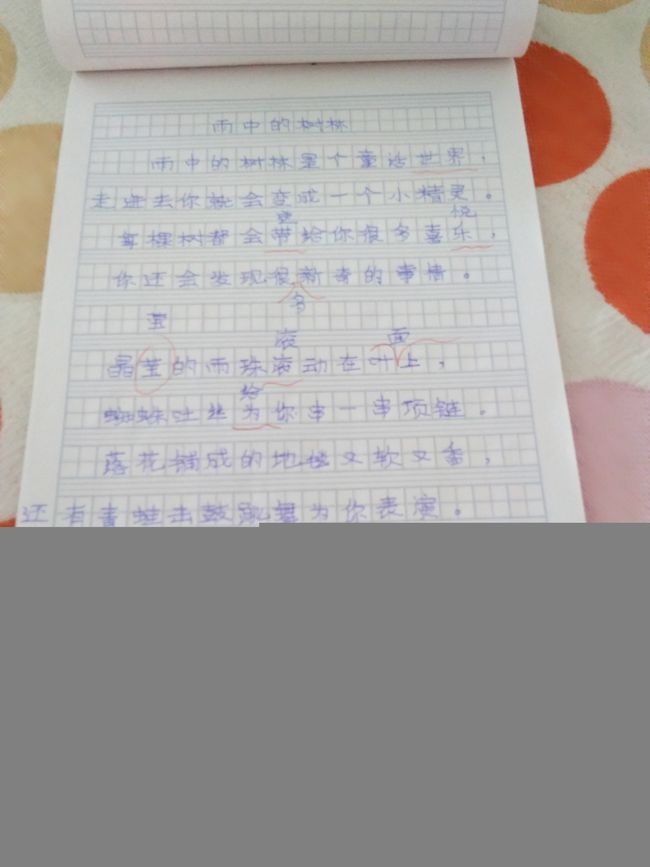 雨中的树林
雨中的树林是个童话世界，
走进去你就会变成一个小精灵。
更 悦
每棵树都会带给你很多喜乐，
你还会发现很新奇的事情。
多
莹
滚 面
晶莹的雨珠滚动在叶上，
给
蜘蛛吐丝为你串一串项链。
落花铺成的地毯又软又香，
还有青蛙击鼓跳舞为你表演。